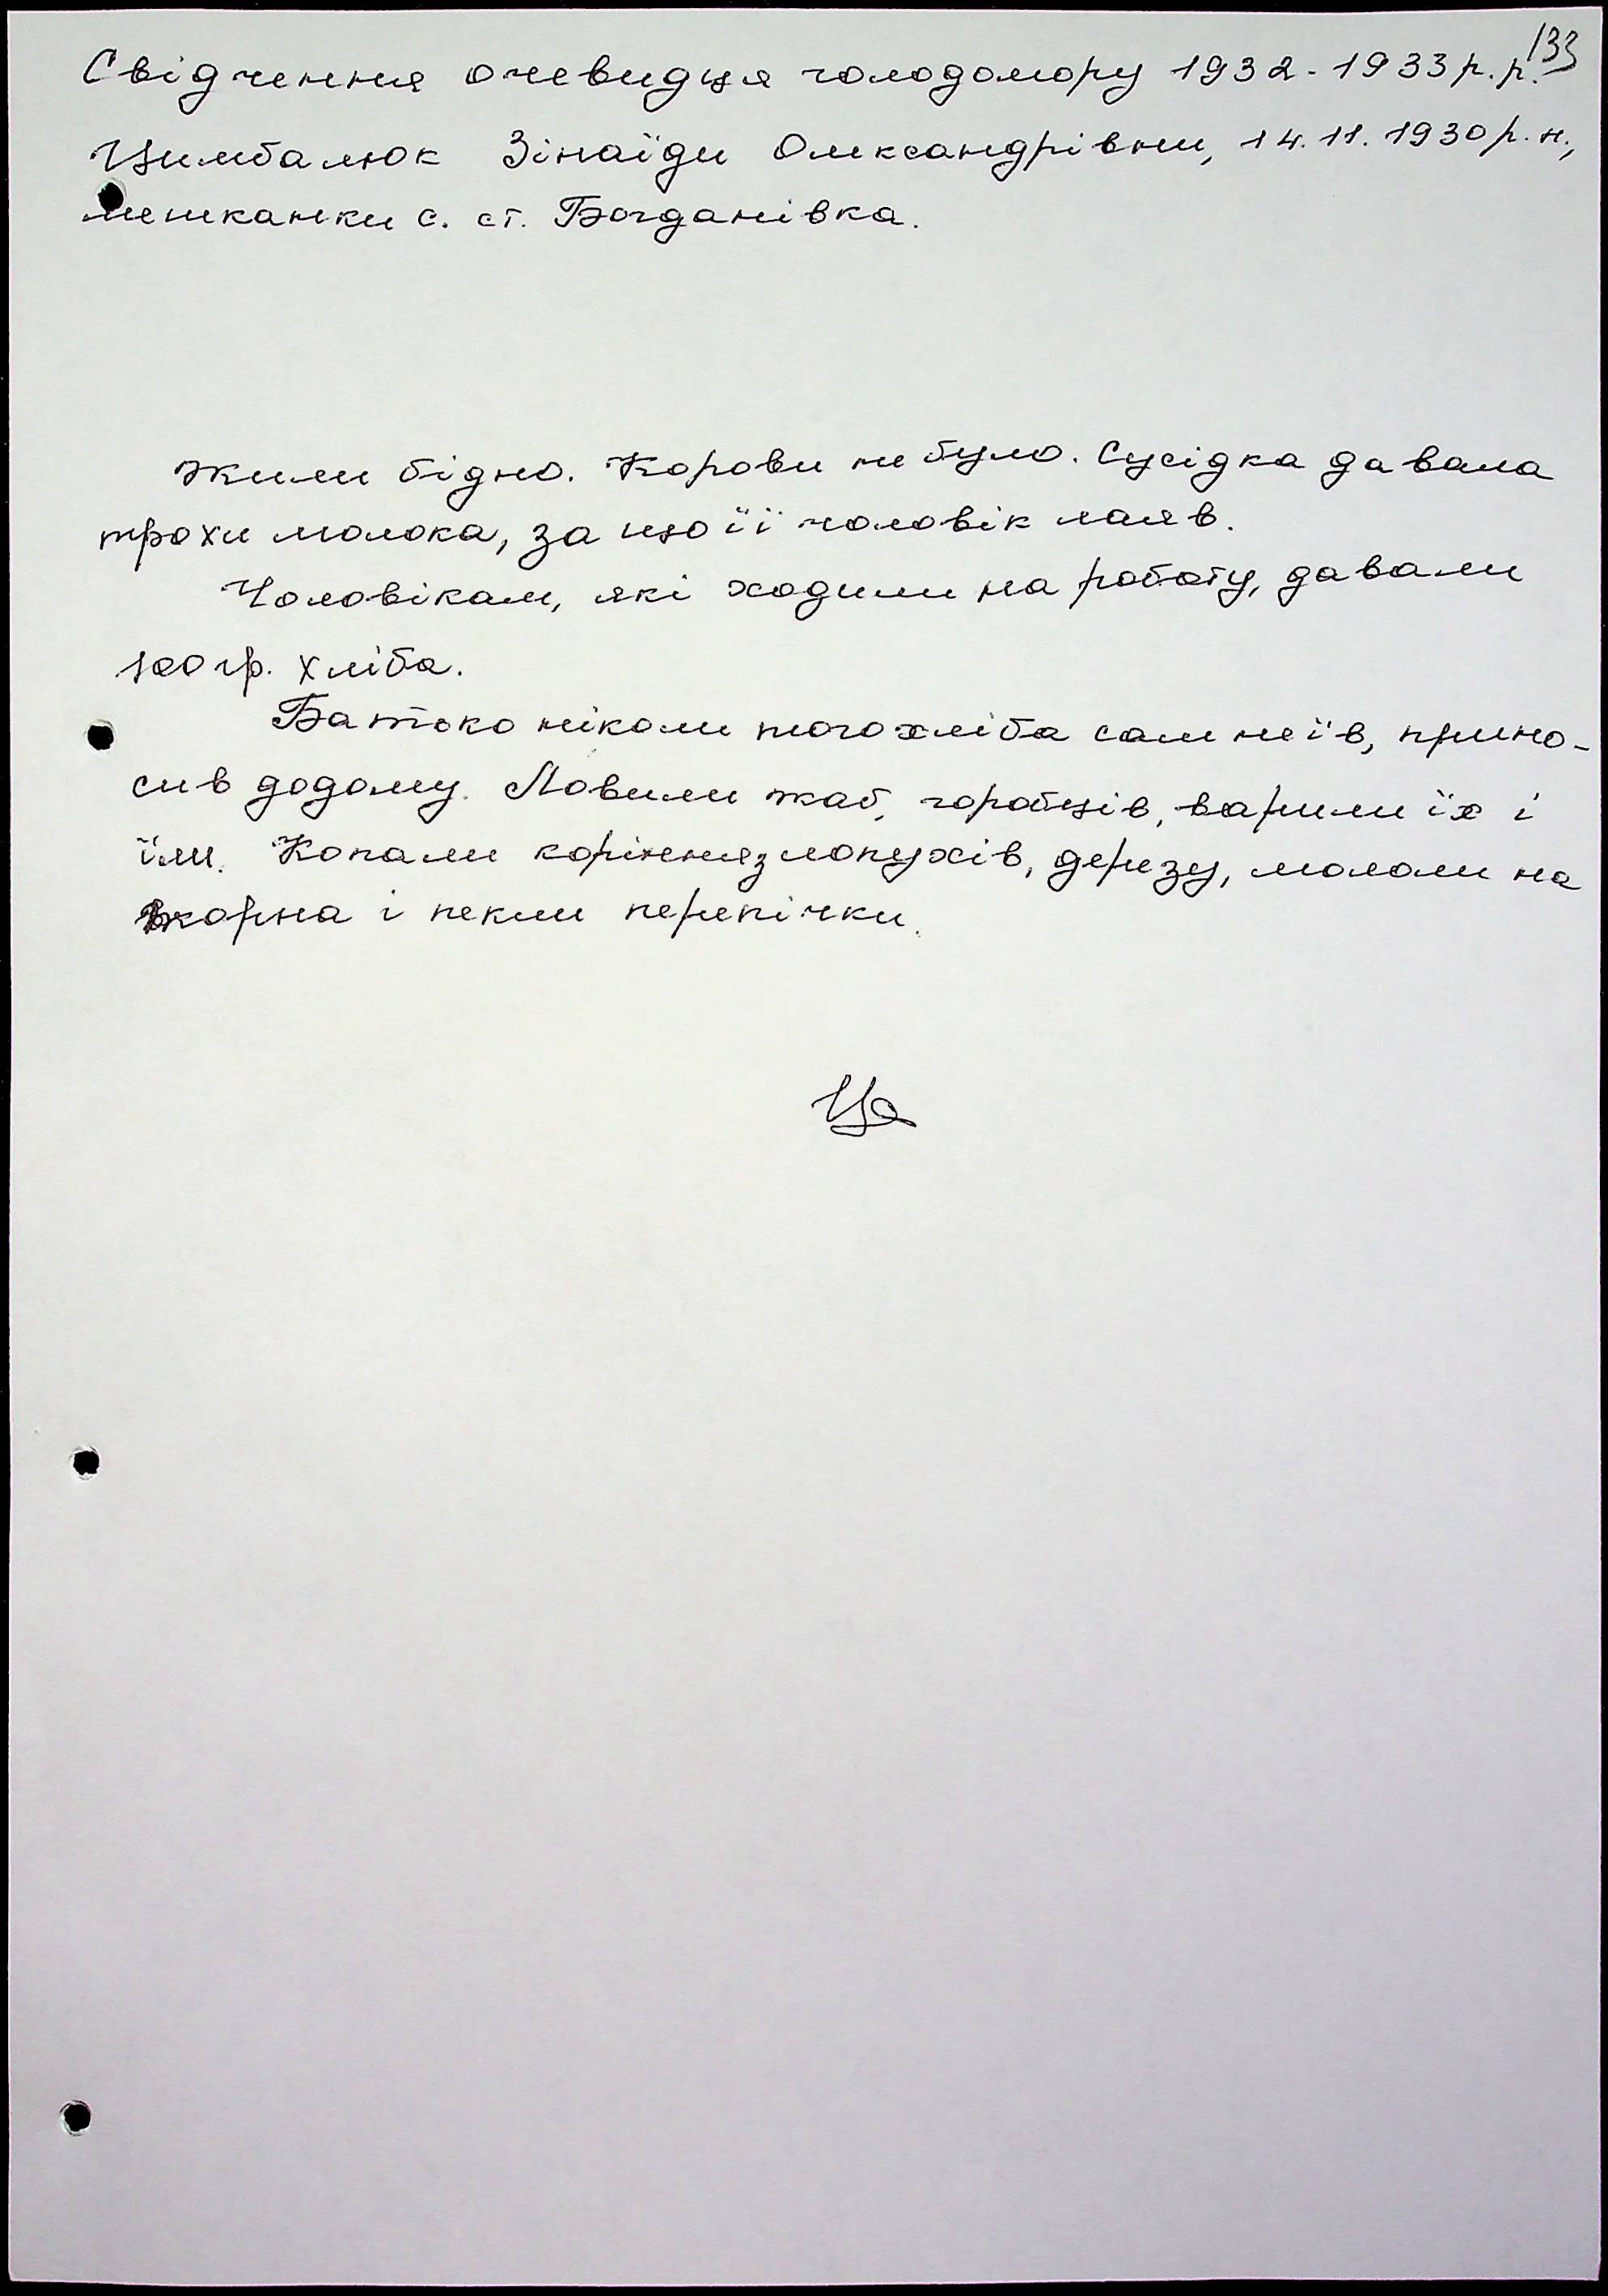 133
Свідчення очевидця голодомору 1932-1933 р.р.
Цимбалюк Зінаїди Олександрівни, 14.11.1930 р.н.,
мешканки с. ст. Богданівка.
Жили бідно. Корови не було. Сусідка давала
трохи молока, за що її чоловік лаяв.
Чоловікам, які ходили на роботу, давали
100 гр. хліба.
Батько ніколи того хліба сам не їв, прино-
сив додому. Ловили жаб, горобців, варили їх і
їли. Копали коріння з лопухів, дерезу, мололи на
жорна і пекли перепічки.